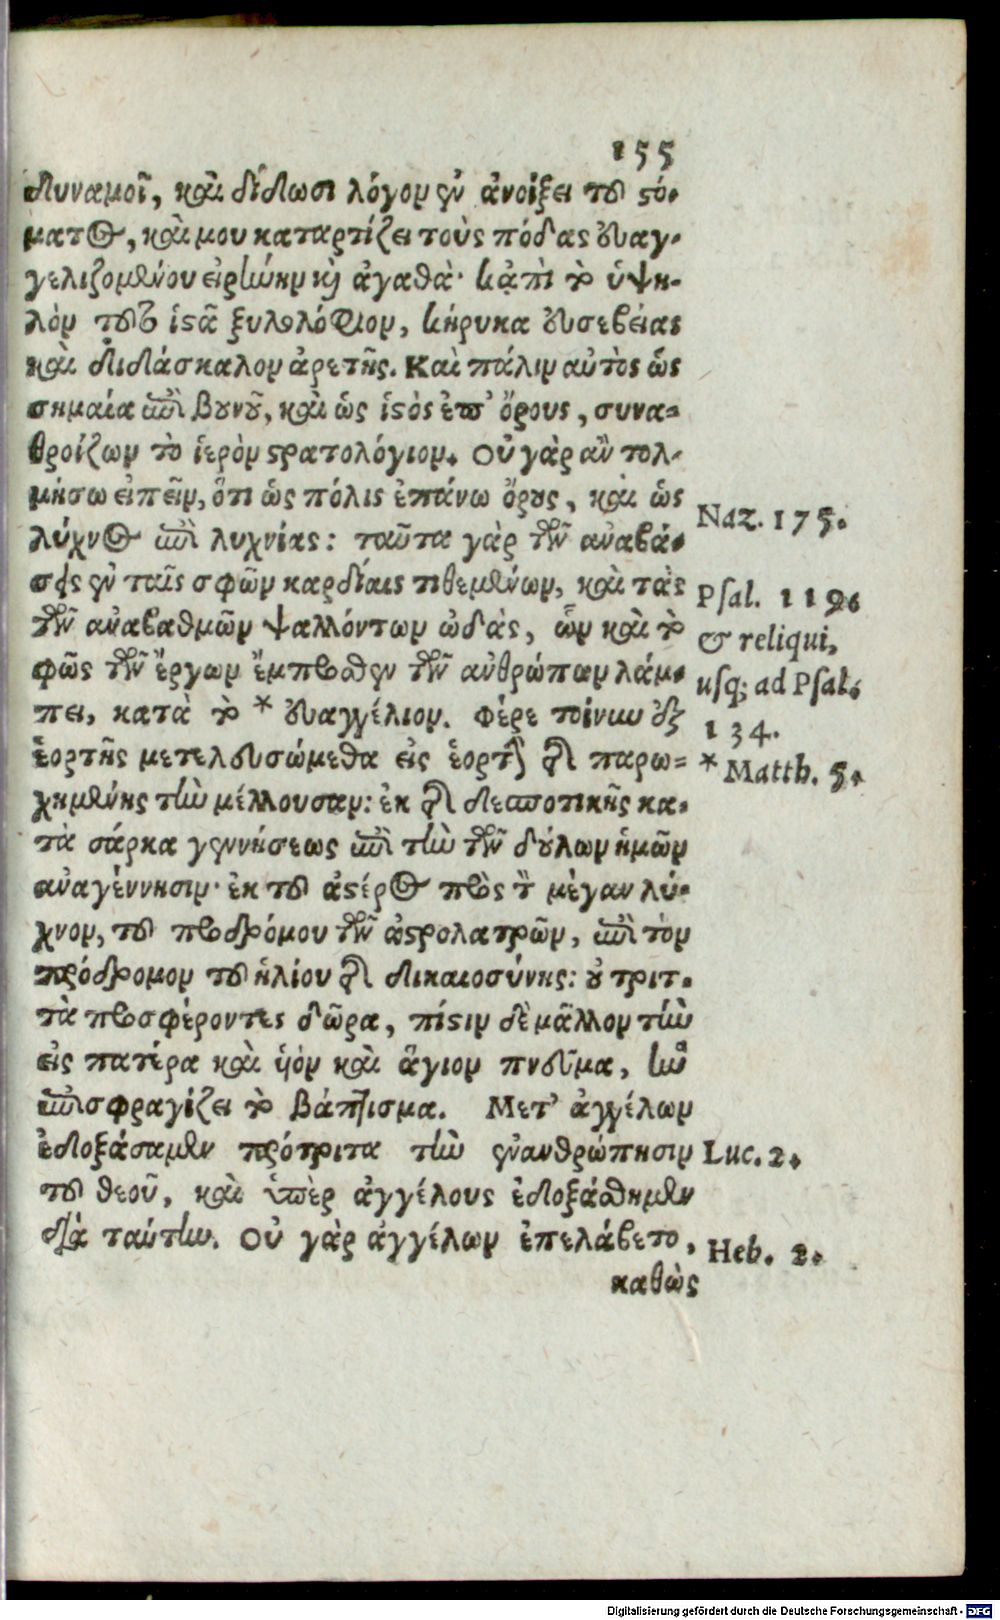 155
δυναμοῖ, καὶ δίδωσι λόγον ἐν ἀνοίξει τοῦ στό-
ματος, καὶ μου καταρτίζει τοὺς πόδας εὐαγ-
γελιζομένου εἰρήνην καὶ ἀγαθὰ· κἀπὶ τὸ ὑψη-
λὸν τουτὶ ἱστᾷ ξυλολόγιον, κήρυκα εὐσεβείας
καὶ διδάσκαλον ἀρετῆς. Καὶ πάλιν αὐτὸς ὡς
σημαία ἐπὶ βουνοῦ, καὶ ὡς ἱστὸς ἐπ' ὄρους, συνα-
θροίζων τὸ ἱερὸν στρατολόγιον. Οὐ γὰρ ἂν τολ-
μήσω εἰπεῖν, ὅτι ὡς πόλις ἐπάνω ὄρους, καὶ ὡς
λύχνος ἐπὶ λυχνίας: ταῦτα γὰρ τῶν ἀναβά-
σεις ἐν ταῖς σφῶν καρδίαις τιθεμένων, καὶ τὰς
τῶν ἀναβαθμῶν ψαλλόντων ᾠδὰς, ὧν καὶ τὸ
φῶς τῶν ἔργων ἔμπροσθεν τῶν ἀνθρώπων λάμ-
πει, κατὰ τὸ * εὐαγγέλιον. Φέρε τοίνυν ἐξ
ἑορτῆς μετελευσώμεθα εἰς ἑορτὴν, τῆς παρω-
χημένης τὴν μέλλουσαν: ἐκ τῆς δεσποτικῆς κα-
τὰ σάρκα γεννήσεως ἐπὶ τὴν τῶν δούλων ἡμῶν
ἀναγέννησιν· ἐκ τοῦ ἀστέρος πρὸς τὸν μέγαν λύ-
χνον, τοῦ προδρόμου τῶν ἀστρολατρῶν, ἐπὶ τὸν
πρόδρομον τοῦ ἡλίου τῆς δικαιοσύνης: οὐ τριτ-
τὰ προσφέροντες δῶρα, πίστιν δὲ μᾶλλον τὴν
εἰς πατέρα καὶ υἱὸν καὶ ἅγιον πνεῦμα, ἣν
ἐπισφραγίζει τὸ βάπτισμα. Μετ' ἀγγέλων
ἐδοξάσαμεν πρότριτα τὴν ἐνανθρώπησιν
τοῦ θεοῦ, καὶ ὑπὲρ ἀγγέλους ἐδοξάσθημεν
διὰ ταύτην. Οὐ γὰρ ἀγγέλων ἐπελάβετο,
καθὼς
Naz. 175.
Psal. 119.
& reliqui,
usq; ad Psal.
134.
* Matth. 5.
Luc. 2.
Heb. 2.
Digitalisierung gefördert durch die Deutsche Forschungsgemeinschaft - DFG